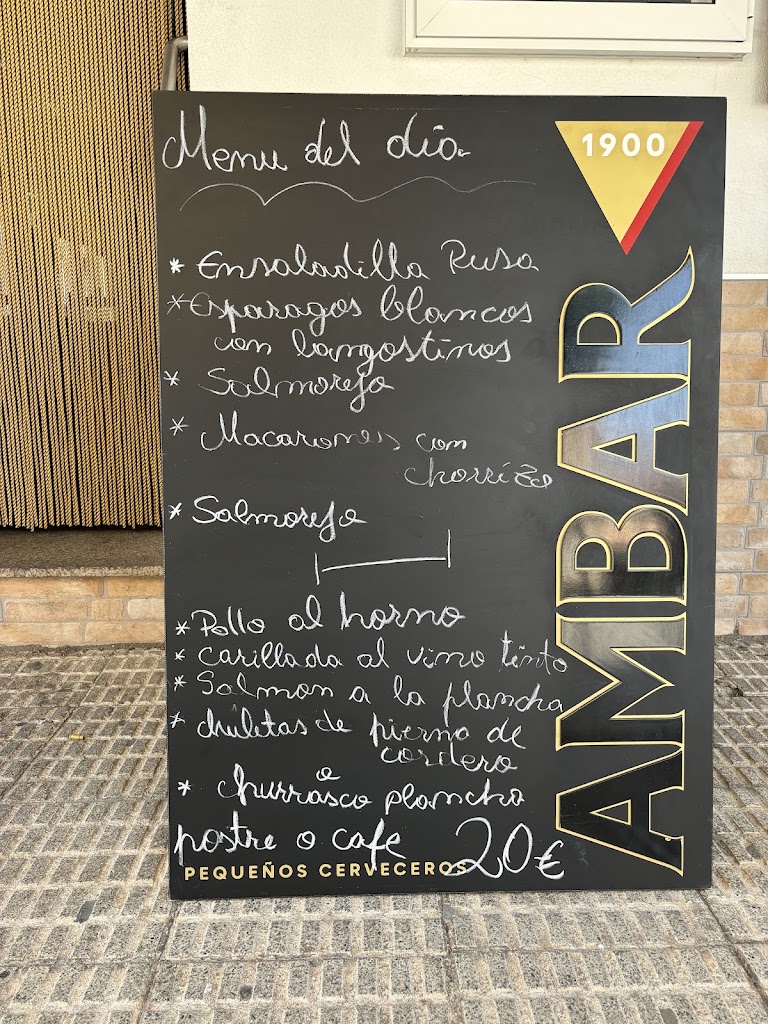 Menu del dia
1900
* Ensaladilla Rusa
* Esparagos blancos
con langostinos
* Salmorejo
* Macarrones con
chorrizo
* Salmorejo
* Pollo al horno
* carillada al vino tinto
* Salmon a la plancha
* chuletas de pierna de
cordero
* churrasco a plancha
postre o cafe 20€
PEQUEÑOS CERVECEROS
AMBAR